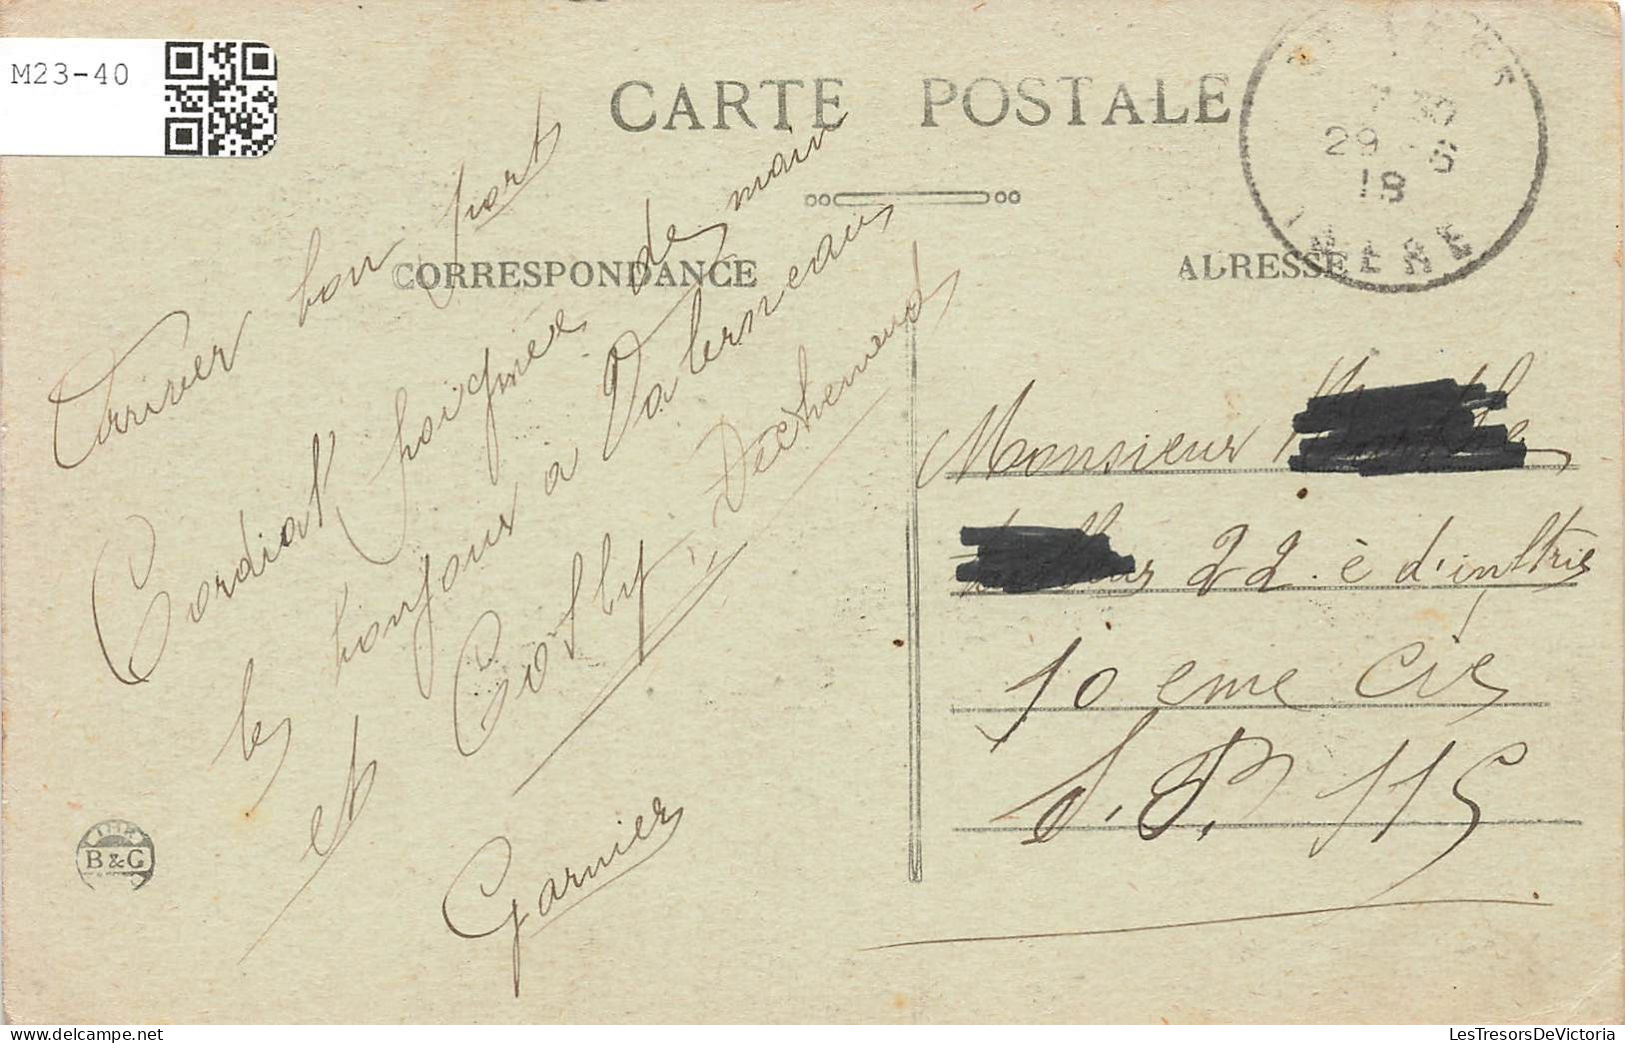 M23-40
CARTE POSTALE
7 30
29 -6
18
INDRE
CORRESPONDANCE
ADRESSE
Arriver bon port
Cordial' poignée de main
les bonjour à Vaberneaus
et Golby, Dechemend
Garnier
Monsieur
22. è d'inftrie
10 eme Cie
S. P. 115
B & G
LesTresorsDeVictoria
LesTresorsDeVictoria.com